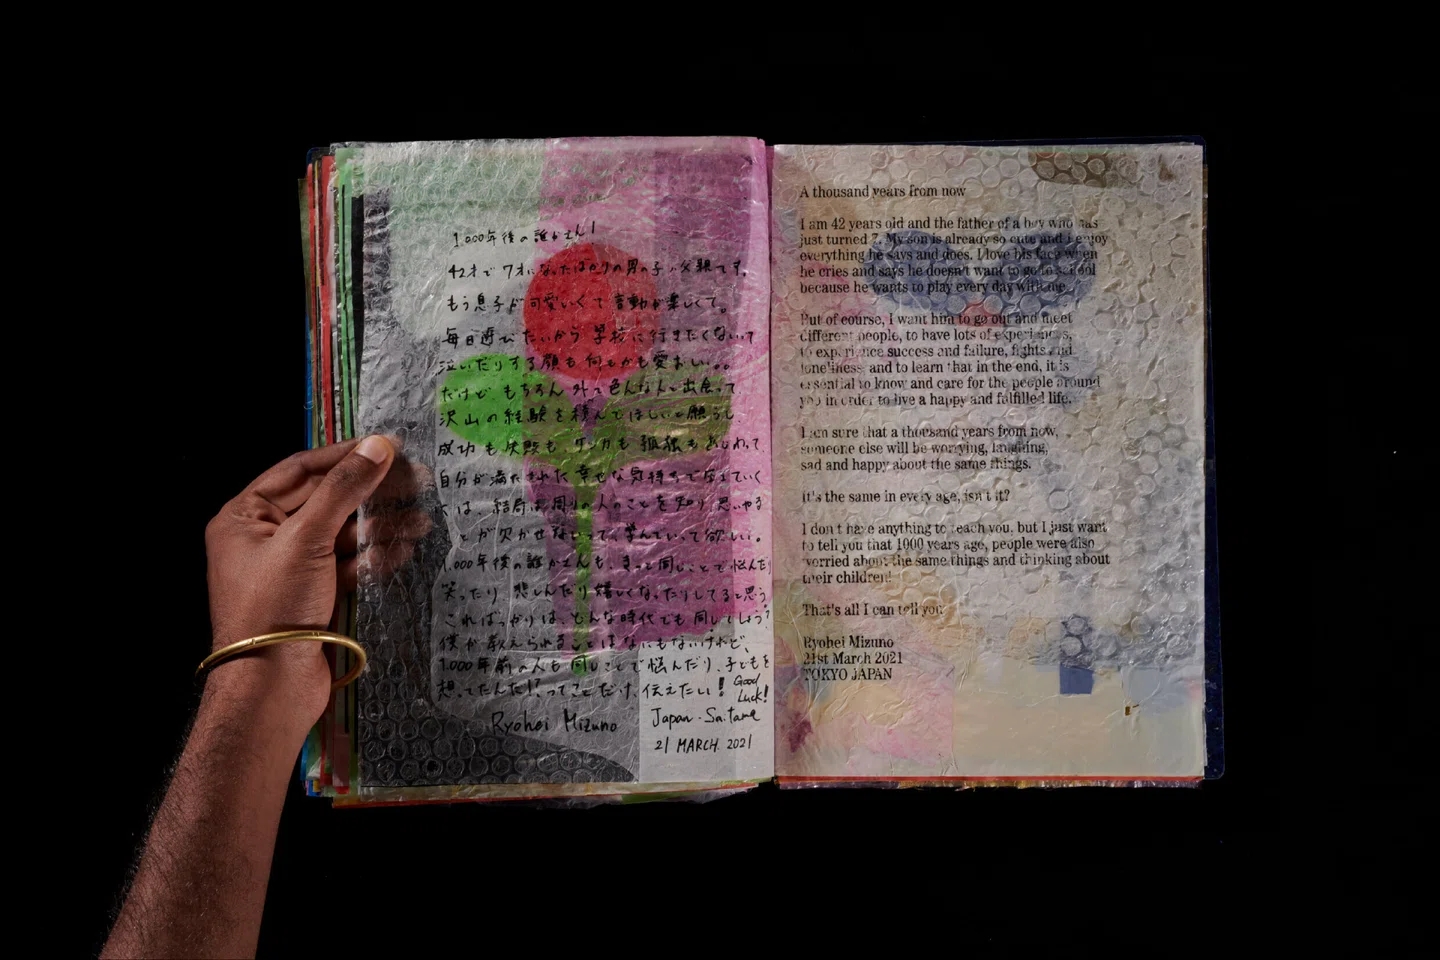 1,000年後の誰かさん!
42才で7才になったばかりの男の子の父親です。
もう息子が可愛いくて言動が楽しくて。
毎日遊びたいから学校に行きたくないって
泣いたりする顔も何もかも愛おしい。。
だけど もちろん 外で色んな人と出会って
沢山の経験を積んでほしいと願うし
成功も失敗も ケンカも 孤独もあじわって
自分が満たされた幸せな気持ちで
には、結局は周りの人のことを知り思いやる
ことが欠かせないって、学んでいって欲しい。
1,000年後の誰かさんも、きっと同じことで悩んだり
笑ったり 悲しんだり嬉しくなったりしてると思う
こればっかりは、どんな時代でも同じでしょう?
僕が教えられることはなにもないけれど、
1,000年前の人も同じことで悩んだり、子どもを
想ってたんだ!?ってことだけ、伝えたい!
Good Luck!
Ryohei Mizuno
Japan-Saitama
21 MARCH 2021
A thousand years from now
I am 42 years old and the father of a boy who has
just turned 7. My son is already so cute and I enjoy
everything he says and does. I love his face when
he cries and says he doesn't want to go to school
because he wants to play every day with me.
But of course, I want him to go out and meet
different people, to have lots of experiences,
to experience success and failure, fights and
loneliness, and to learn that in the end, it is
essential to know and care for the people around
you in order to live a happy and falfilled life.
I am sure that a thousand years from now,
someone else will be worrying, laughing,
sad and happy about the same things.
It's the same in every age, isn't it?
I don't have anything to teach you, but I just want
to tell you that 1000 years ago, people were also
worried about the same things and thinking about
their children!
That's all I can tell you
Ryohei Mizuno
21st March 2021
TOKYO JAPAN